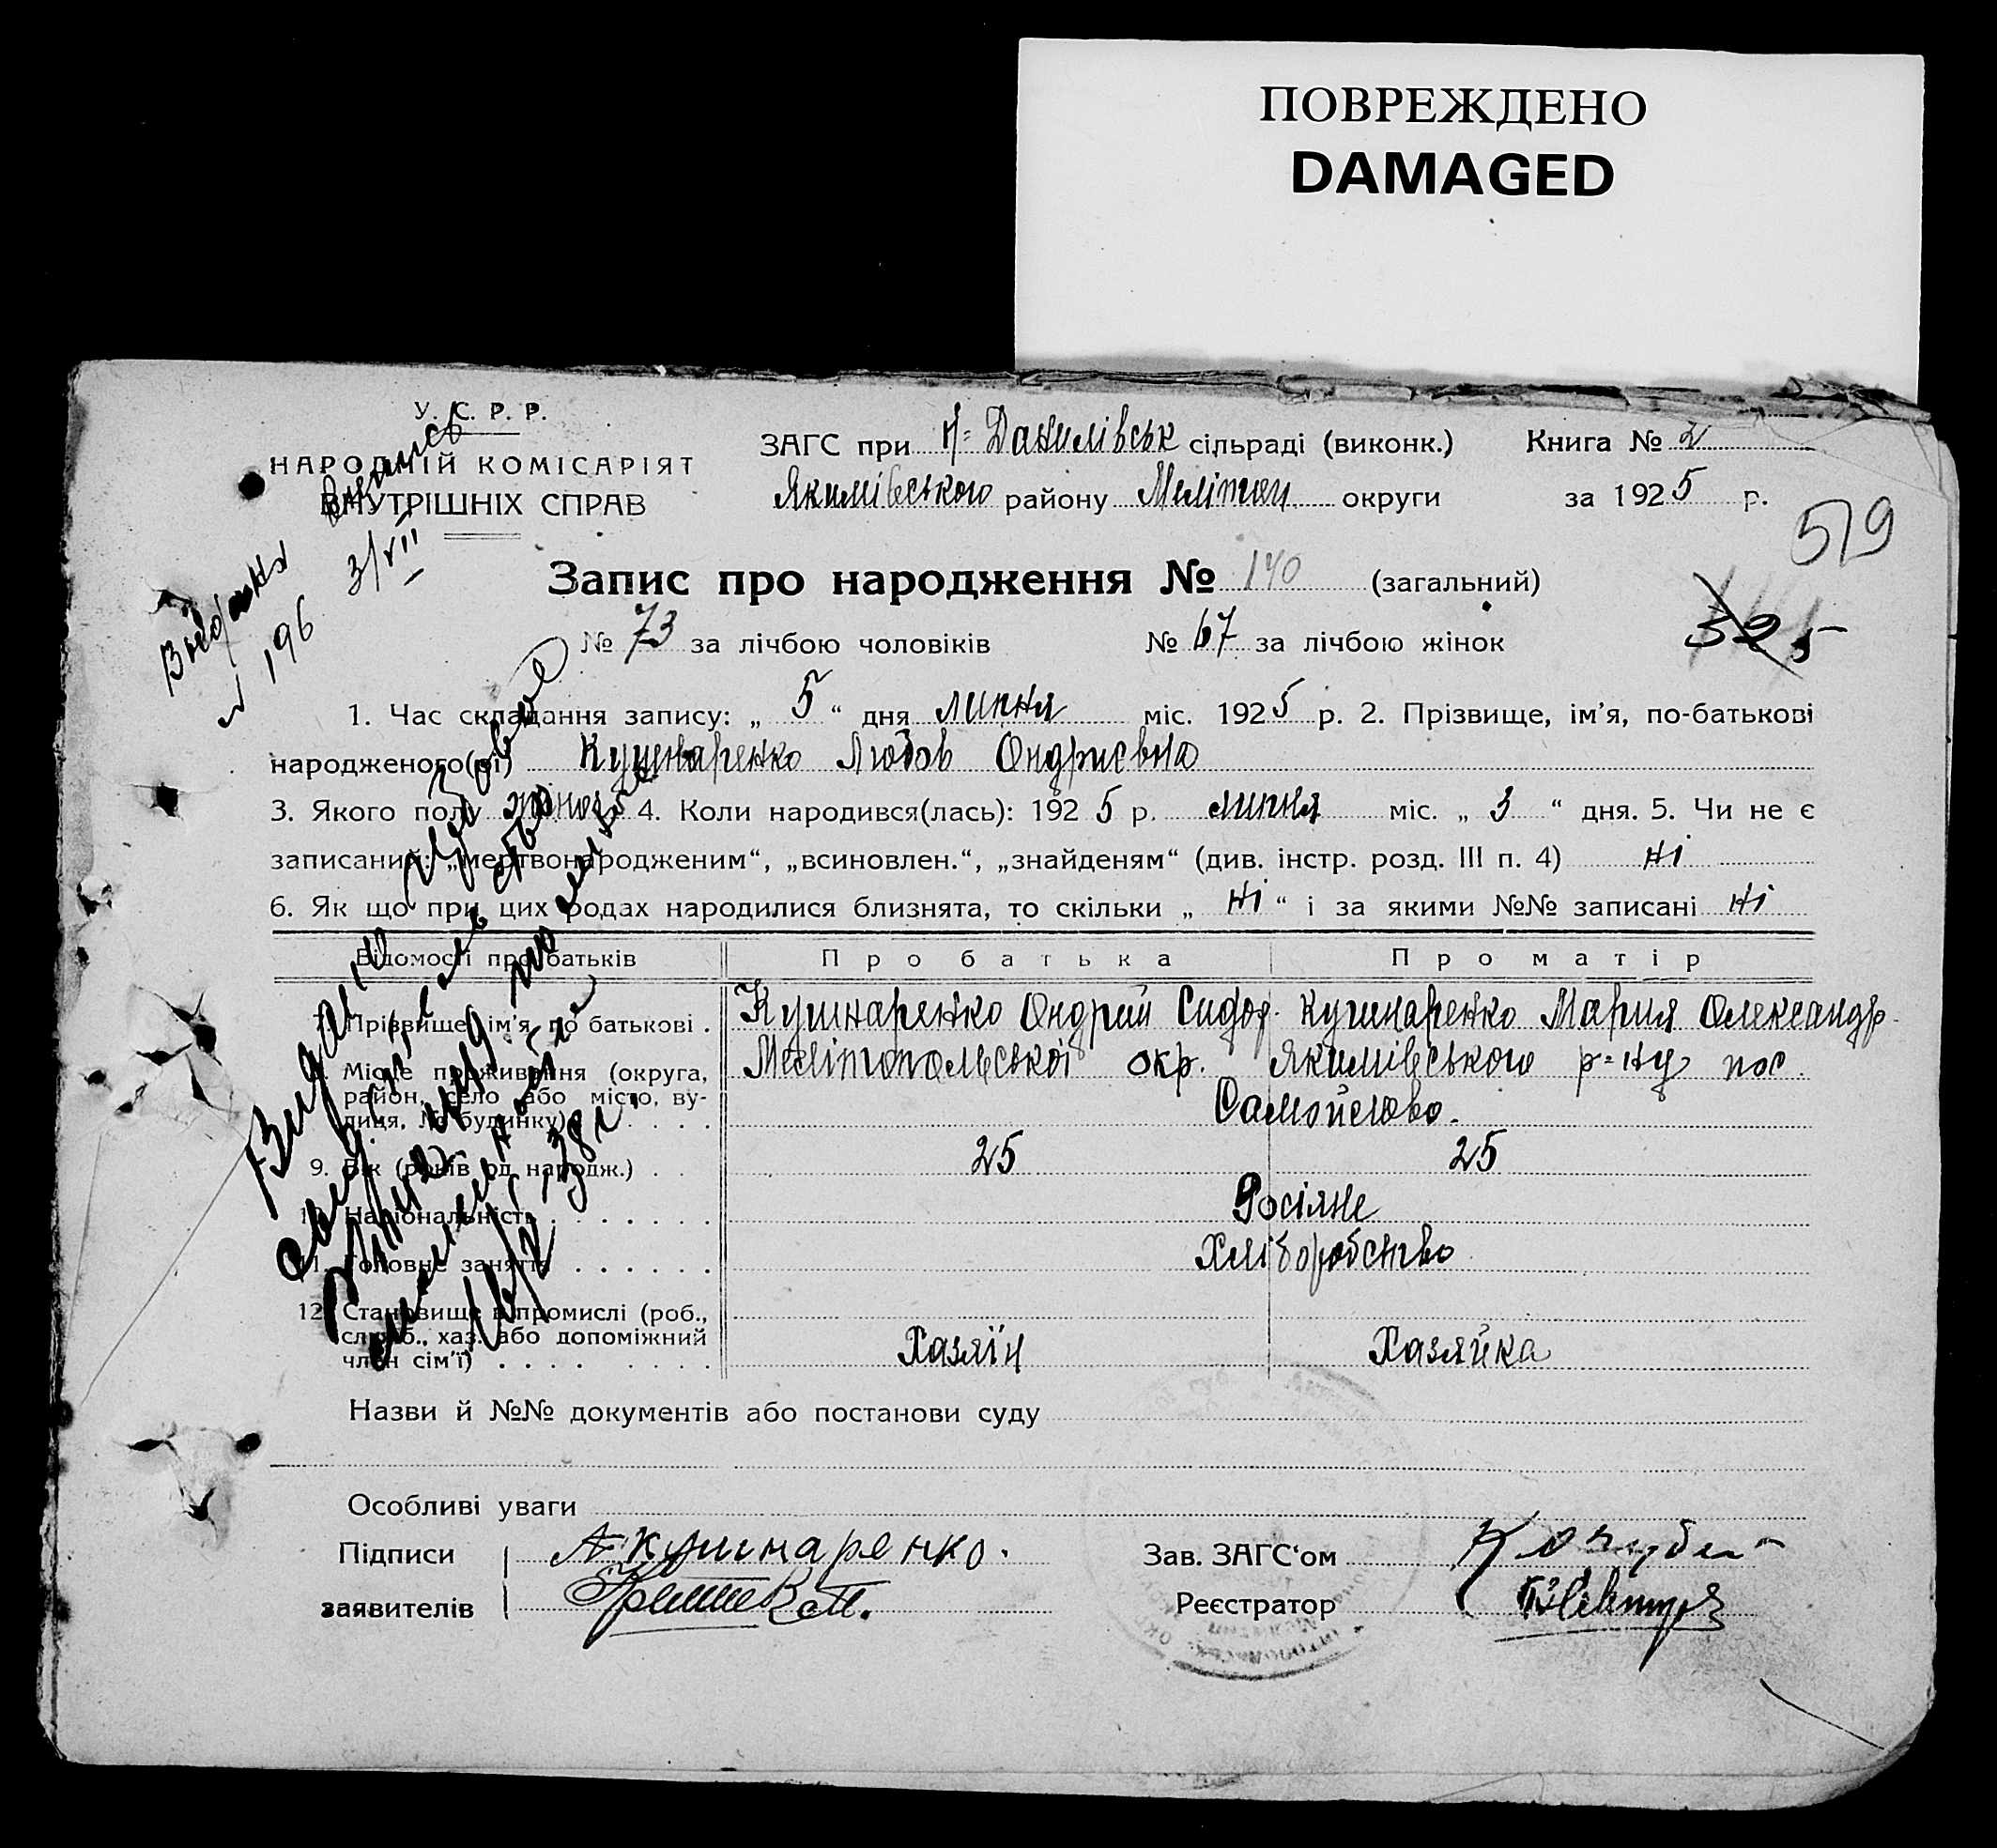 ПОВРЕЖДЕНО
DAMAGED
У. С. Р. Р.
НАРОДНІЙ КОМІСАРІЯТ
ВНУТРІШНІХ СПРАВ
ЗАГС при Н=Данилівськ сільраді (виконк.) Книга № 2
Якимівського району Мелітоп. округи за 1925 р.
519
Запис про народження № 140 (загальний)
325
№ 73 за лічбою чоловіків № 67 за лічбою жінок
1. Час складання запису: „ 5 “ дня липня міс. 1925 р. 2. Прізвище, ім’я, по-батькові
народженого(ої) Кушнаренко Любов Ондриєвна
3. Якого полу жіноч 4. Коли народився(лась): 1925 р. липня міс. „ 3 “ дня. 5. Чи не є
записаний: „мертвонародженим“, „всиновлен.“, „знайденям“ (див. інстр. розд. III п. 4) ні
6. Як що при цих родах народилися близнята, то скільки „ ні “ і за якими №№ записані ні
Відомості про батьків Про батька Про матір
7. Прізвище, ім’я, по батькові . Кушнаренко Ондрий Сидор. Кушнаренко Мария Олександр.
8. Місце проживання (округа, Меліпопольської окр. Якимівського р=ну пос.
район, село або місто, ву-
лиця, № будинку) . . . . Самойлово.
9. Вік (років од народж.) . . 25 25
10. Національність . . . . . . . Росіяне
11. Головне заняття . . . . . . Хліборобство
12. Становище в промислі (роб.,
служб., хаз. або допоміжний
член сім’ї) . . . . . . . . Хазяїн Хазяйка
Назви й №№ документів або постанови суду
Особливі уваги
Підписи А Кушнаренко.
заявителів
Зав. ЗАГС‘ом Кочубей
Реєстратор
Видана выпись
196 3/VII
Видано
16/2 38 г.